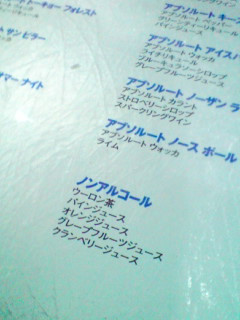 トーキョー フォレスト
サン ビター
マー ナイト
アブソルート
アブソルート ウォッカ
パインジュース
アブソルート アイス
アブソルート ウォッカ
ライチリキュール
ブルーキュラソーシロップ
グレープフルーツジュース
アブソルート ノーザン
アブソルート カラント
ストロベリーシロップ
スパークリングワイン
アブソルート ノース ポール
アブソルート ウォッカ
ライム
ノンアルコール
ウーロン茶
パインジュース
オレンジジュース
グレープフルーツジュース
クランベリージュース